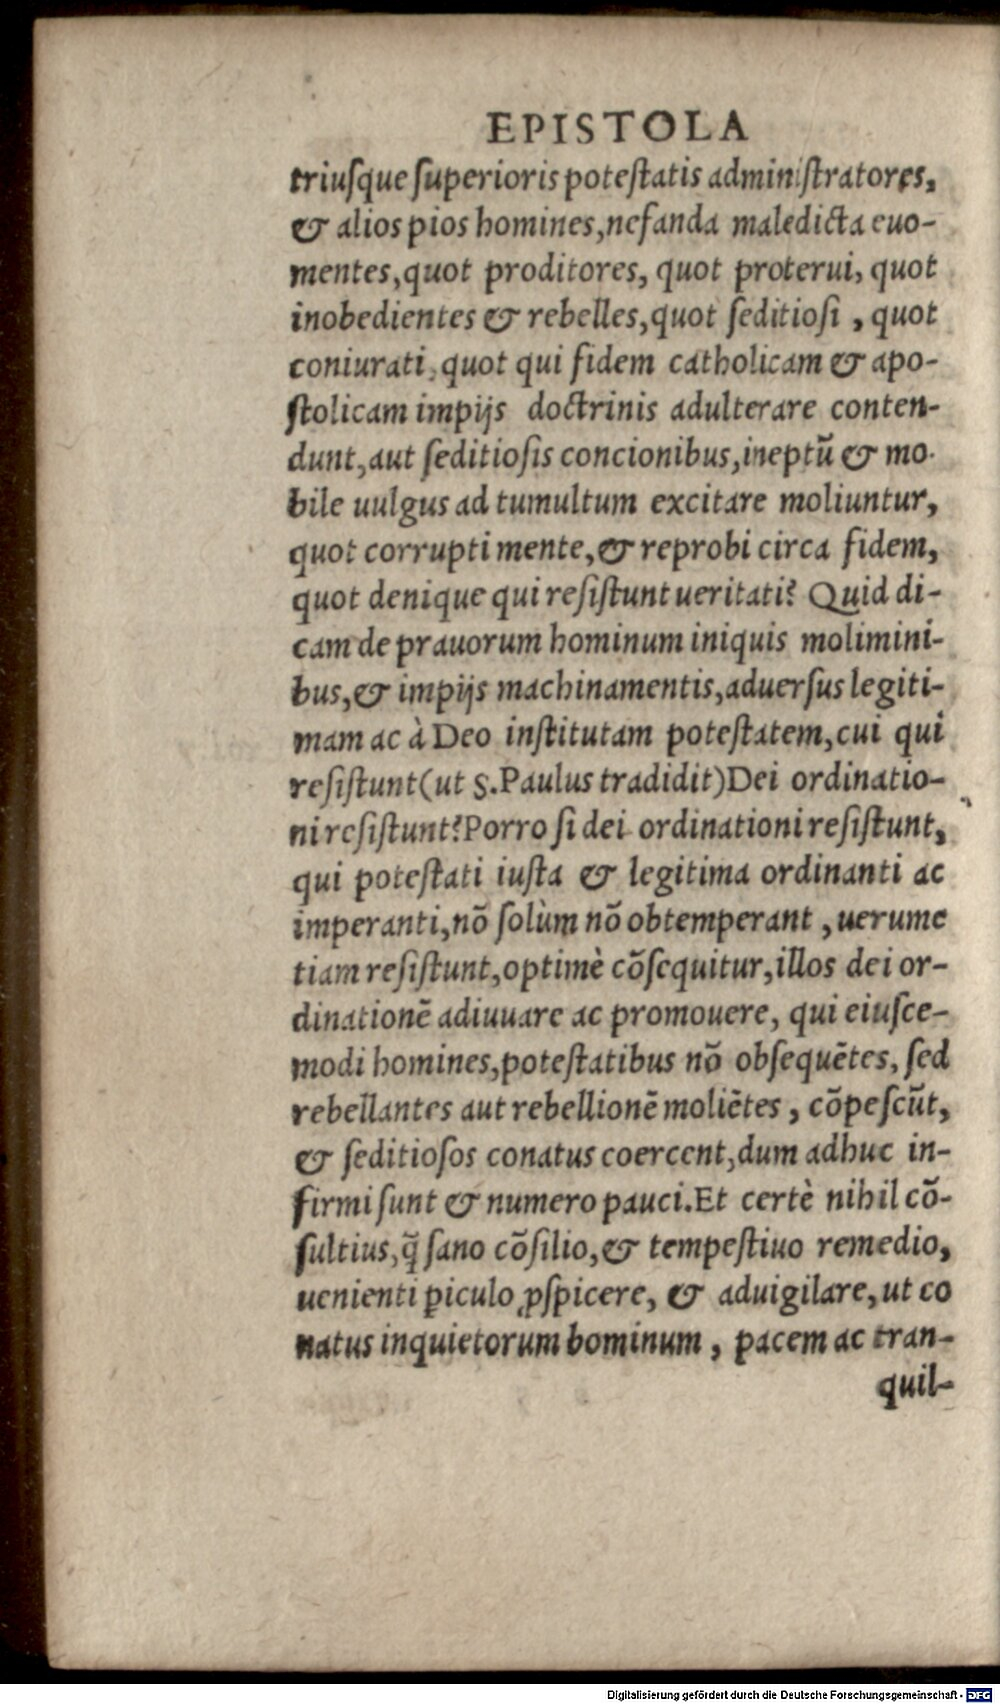 EPISTOLA
triuſque ſuperioris poteſtatis adminiſtratores,
& alios pios homines, nefanda maledicta euo-
mentes, quot proditores, quot proterui, quot
inobedientes & rebelles, quot ſeditioſi, quot
coniurati, quot qui fidem catholicam & apo-
ſtolicam impijs doctrinis adulterare conten-
dunt, aut ſeditioſis concionibus, ineptū & mo-
bile uulgus ad tumultum excitare moliuntur,
quot corrupti mente, & reprobi circa fidem,
quot denique qui reſiſtunt ueritati? Quid di-
cam de prauorum hominum iniquis molimini-
bus, & impijs machinamentis, aduerſus legiti-
mam ac à Deo inſtitutam poteſtatem, cui qui
reſiſtunt (ut S. Paulus tradidit) Dei ordinatio-
ni reſiſtunt? Porro ſi dei ordinationi reſiſtunt,
qui poteſtati iuſta & legitima ordinanti ac
imperanti, nō ſolùm nō obtemperant, uerume
tiam reſiſtunt, optimè cōſequitur, illos dei or-
dinationē adiuuare ac promouere, qui eiuſce-
modi homines, poteſtatibus nō obſequētes, ſed
rebellantes aut rebellionē moliētes, cōpeſcūt,
& ſeditioſos conatus coercent, dum adhuc in-
firmi ſunt & numero pauci. Et certè nihil cō-
ſultius, q̄ ſano cōſilio, & tempeſtiuo remedio,
uenienti ꝑiculo ꝓſpicere, & aduigilare, ut co
natus inquietorum hominum, pacem ac tran-
quil-
Digitalisierung gefördert durch die Deutsche Forschungsgemeinschaft - DFG